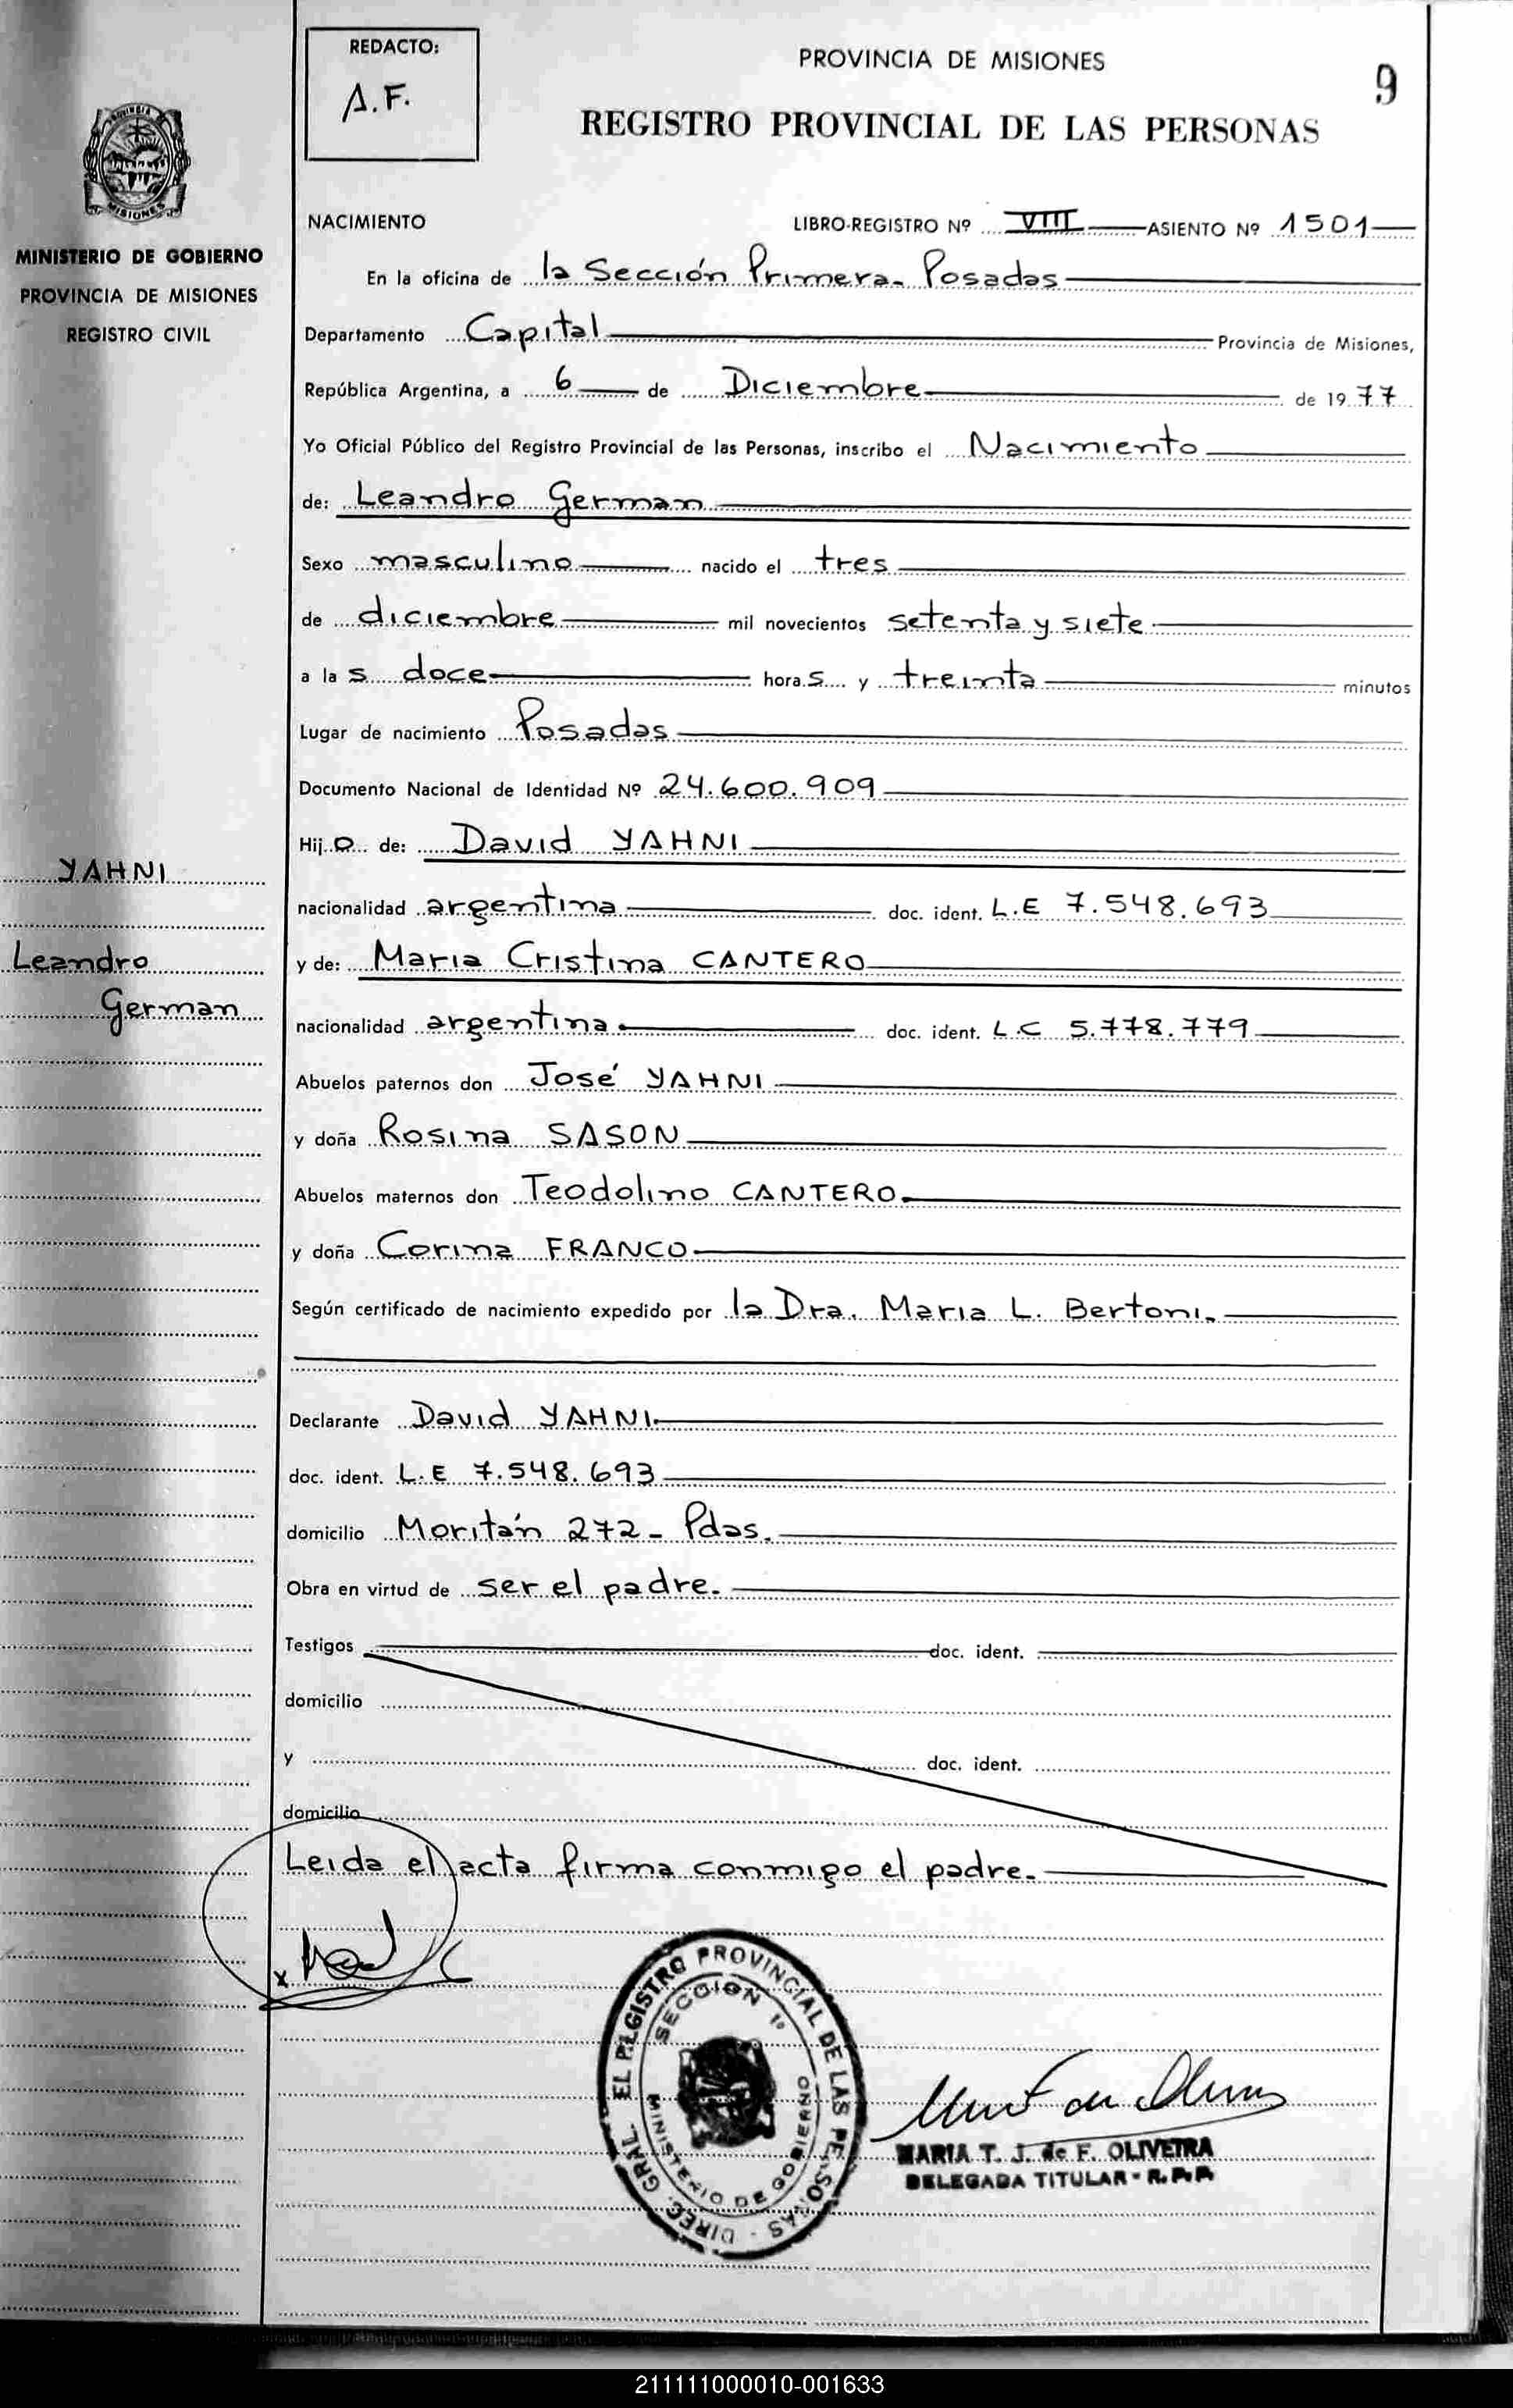 REDACTO:
A.F.
PROVINCIA DE MISIONES
9
REGISTRO PROVINCIAL DE LAS PERSONAS
MISIONES
MINISTERIO DE GOBIERNO
PROVINCIA DE MISIONES
REGISTRO CIVIL
NACIMIENTO
LIBRO-REGISTRO Nº VIII ASIENTO Nº 1501
En la oficina de la Sección Primera- Posadas
Departamento Capital Provincia de Misiones,
República Argentina, a 6 de Diciembre de 1977
Yo Oficial Público del Registro Provincial de las Personas, inscribo el Nacimiento
de: Leandro German
Sexo masculino nacido el tres
de diciembre mil novecientos setenta y siete
a las doce horas y treinta minutos
Lugar de nacimiento Posadas
Documento Nacional de Identidad Nº 24.600.909
Hijo de: David YAHNI
YAHNI
nacionalidad argentina doc. ident. L.E 7.548.693
Leandro
y de: Maria Cristina CANTERO
German
nacionalidad argentina doc. ident. L.C 5.778.779
Abuelos paternos don José YAHNI
y doña Rosina SASON
Abuelos maternos don Teodolino CANTERO
y doña Corina FRANCO
Según certificado de nacimiento expedido por la Dra. Maria L. Bertoni.
Declarante David YAHNI
doc. ident. L.E 7.548.693
domicilio Moritán 272- Pdas.
Obra en virtud de ser el padre.
Testigos doc. ident.
domicilio
y doc. ident.
domicilio
Leida el acta firma conmigo el padre.
x
DIREC. GRAL. EL REGISTRO PROVINCIAL DE LAS PERSONAS
SECCION 1º
MINISTERIO DE GOBIERNO
MARIA T. J. de F. OLIVEIRA
DELEGADA TITULAR - R.P.P.
211111000010-001633